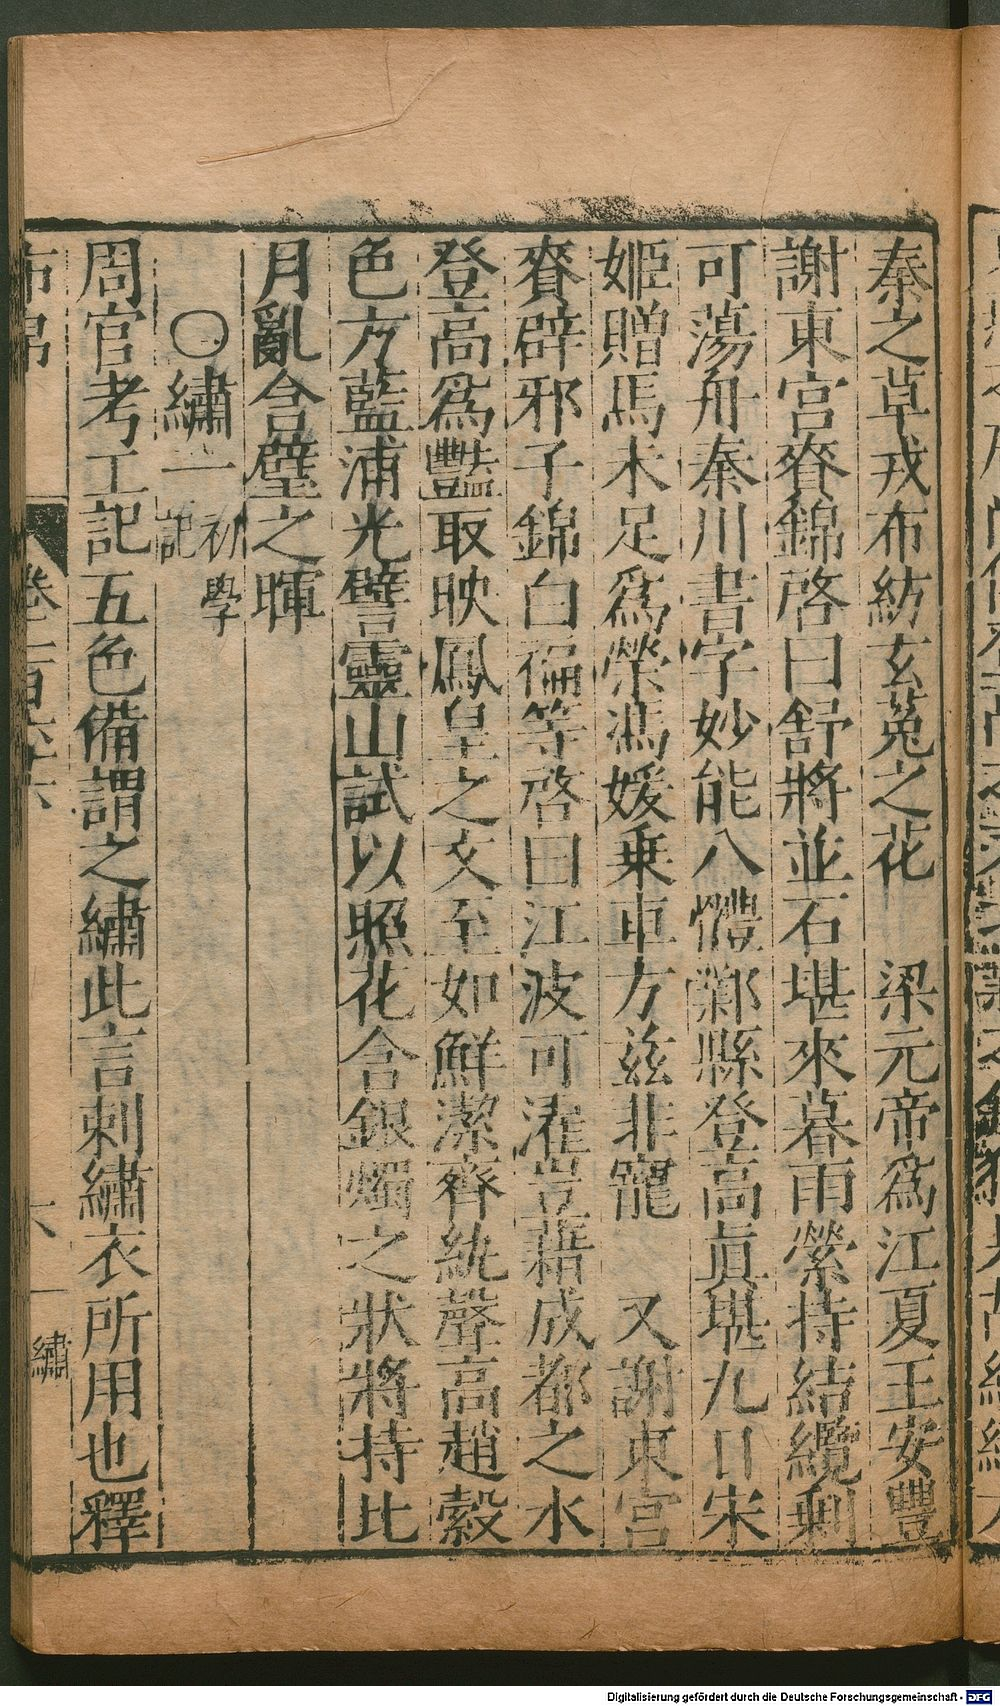 秦之草戎布紡玄菟之花　梁元帝爲江夏王安豐
謝東宮賚錦啓曰舒將並石堪來暮雨縈持結纜剩
可蕩舟秦川書字妙能八體鄴縣登高眞堪九日宋
姬贈馬未足爲榮馮媛乗車方兹非寵　又謝東宮
賚辟邪子錦白褊等啓曰江波可濯豈藉成都之水
登高爲豔取映鳳皇之文至如鮮潔齊紈聲高趙縠
色方藍浦光譬靈山試以照花含銀燭之狀將持比
月亂合璧之暉
〇繡一 初學記
周官考工記五色備謂之繡此言刺繡衣所用也釋
布錦
卷一百六十
六
繡
Digitalisierung gefördert durch die Deutsche Forschungsgemeinschaft - DFG